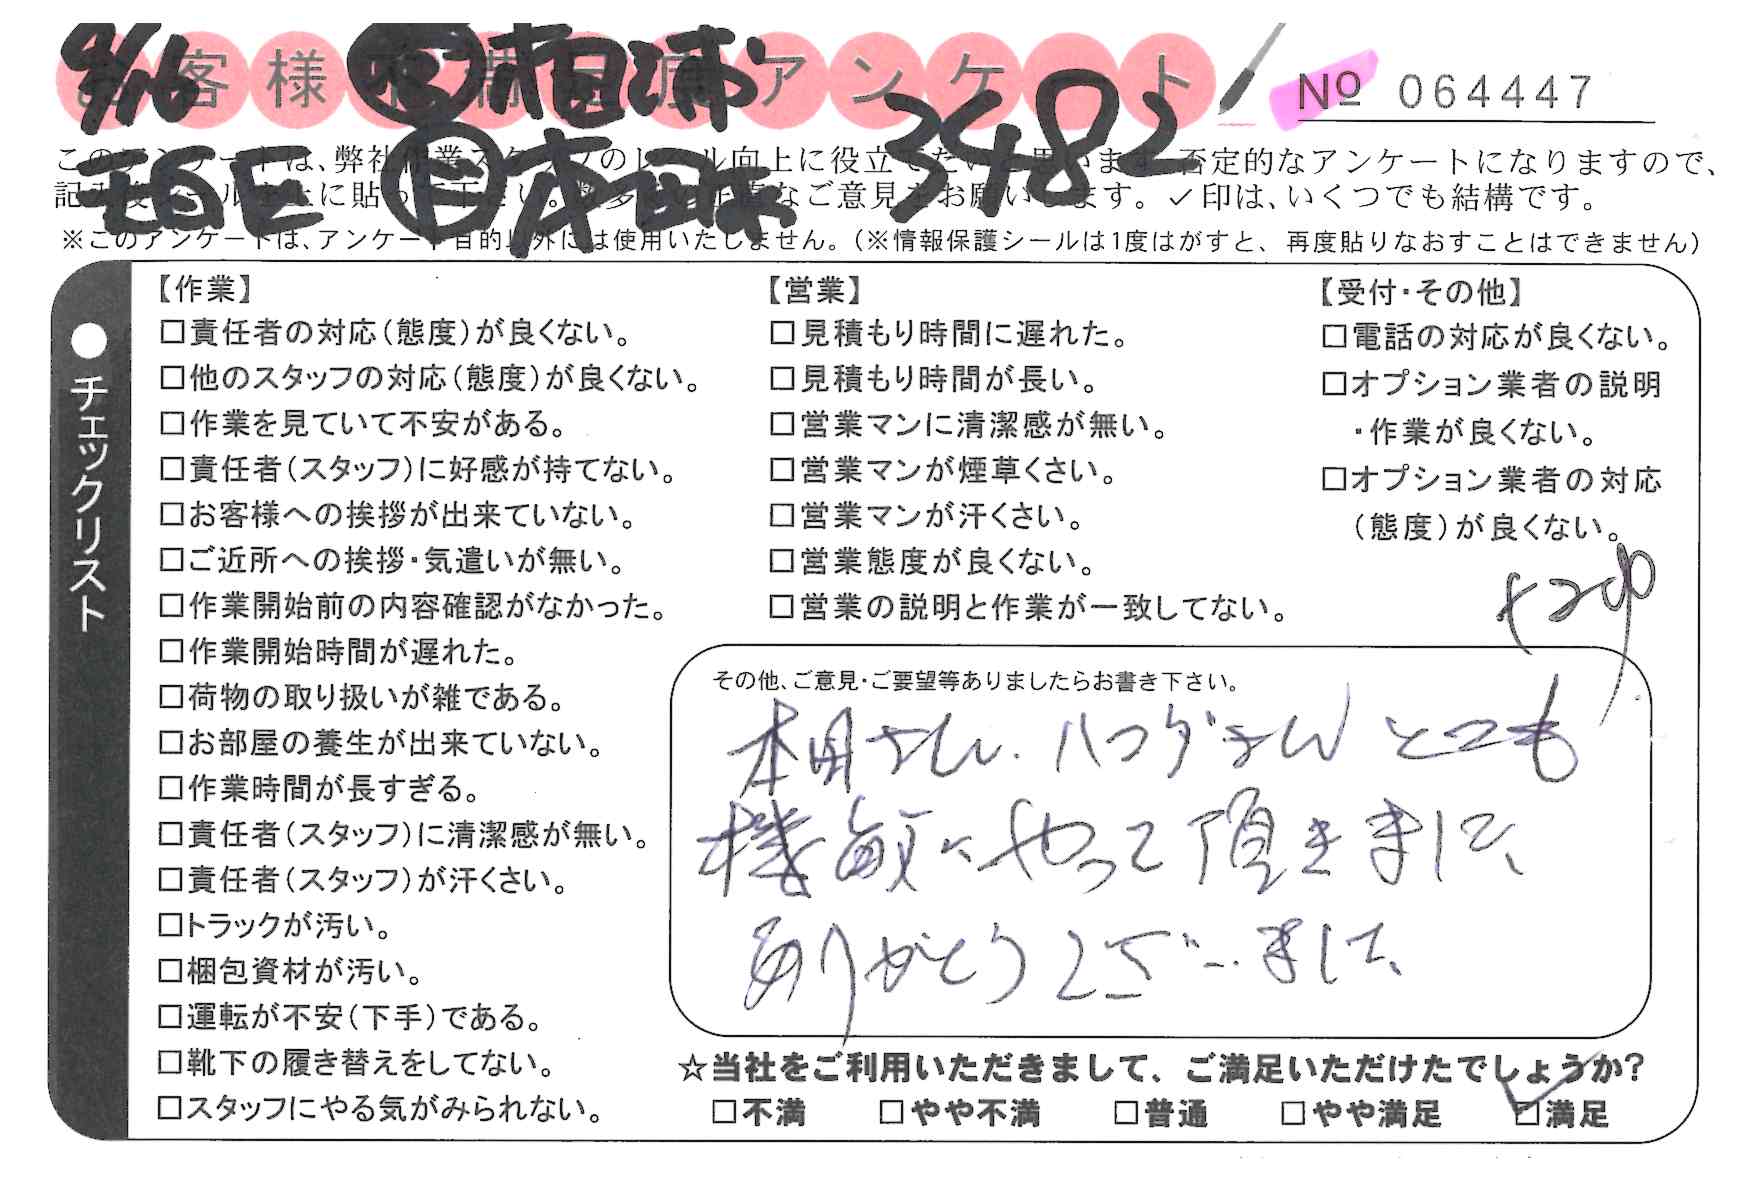 4/16 相浦
お客様不満足度アンケート
No 064447
3482
埼玉 本田
このアンケートは、弊社作業スタッフのレベル向上に役立てたいと思います。否定的なアンケートになりますので、
記入後シールを上に貼って下さい。数多くの正直なご意見をお願いします。✓印は、いくつでも結構です。
※このアンケートは、アンケート目的以外には使用いたしません。(※情報保護シールは1度はがすと、再度貼りなおすことはできません)
●チェックリスト
【作業】
□責任者の対応(態度)が良くない。
□他のスタッフの対応(態度)が良くない。
□作業を見ていて不安がある。
□責任者(スタッフ)に好感が持てない。
□お客様への挨拶が出来ていない。
□ご近所への挨拶・気遣いが無い。
□作業開始前の内容確認がなかった。
□作業開始時間が遅れた。
□荷物の取り扱いが雑である。
□お部屋の養生が出来ていない。
□作業時間が長すぎる。
□責任者(スタッフ)に清潔感が無い。
□責任者(スタッフ)が汗くさい。
□トラックが汚い。
□梱包資材が汚い。
□運転が不安(下手)である。
□靴下の履き替えをしてない。
□スタッフにやる気がみられない。
【営業】
□見積もり時間に遅れた。
□見積もり時間が長い。
□営業マンに清潔感が無い。
□営業マンが煙草くさい。
□営業マンが汗くさい。
□営業態度が良くない。
□営業の説明と作業が一致してない。
【受付・その他】
□電話の対応が良くない。
□オプション業者の説明
・作業が良くない。
□オプション業者の対応
(態度)が良くない。
その他、ご意見・ご要望等ありましたらお書き下さい。
本田さん、ハマダさん とても
機敏にやって頂きまして、
ありがとうございました、
☆当社をご利用いただきまして、ご満足いただけたでしょうか?
□不満 □やや不満 □普通 □やや満足 ☑満足